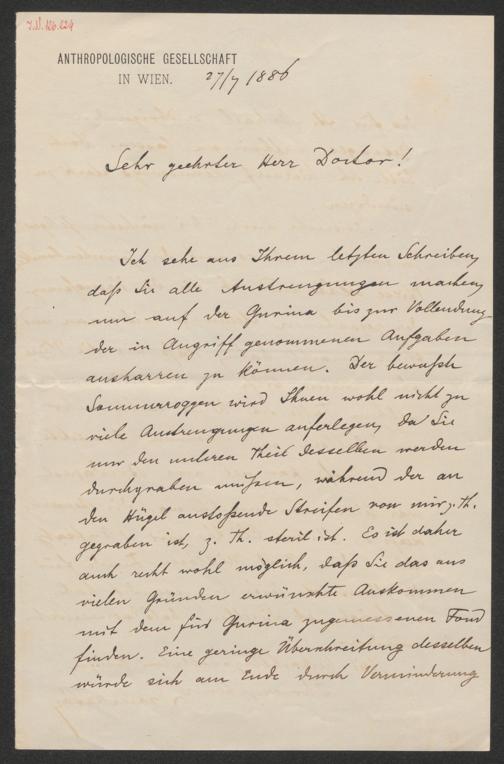 J.N. 126.224
ANTHROPOLOGISCHE GESELLSCHAFT
IN WIEN.
27/7 1886
Sehr geehrter Herr Doctor!
Ich sehe aus Ihrem letzten Schreiben,
daß Sie alle Anstrengungen machen,
um auf der Gurina bis zur Vollendung
der in Angriff genommenen Aufgaben
ausharren zu können. Der bewußte
Sommerroggen wird Ihnen wohl nicht zu
viele Anstrengungen auferlegen, da Sie
nur den unteren Theil desselben werden
durchgraben müssen, während der an
den Hügel anstoßende Streifen von mir z. Th.
gegraben ist, z. Th. steril ist. Es ist daher
auch recht wohl möglich, daß Sie das aus
vielen Gründen erwünschte Auskommen
mit dem für Gurina zugemessenen Fond
finden. Eine geringe Überschreitung desselben
würde sich am Ende durch Verminderung